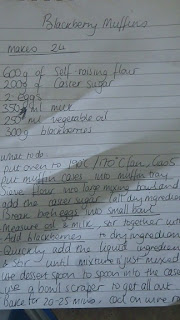 Blackberry Muffins
Makes 24
600g of Self-raising flour
200g of Caster sugar
2 eggs
350 ml milk
250 ml vegetable oil
300g blackberries
What to do
Put oven to 190c / 170°C fan, Gas 5
Put muffin cases into muffin tray
Sieve flour into large mixing bowl and
add the caster sugar (all dry ingredien
Break both eggs into small bowl
Measure oil & milk, stir together
Add blackberries to dry ingredie
Quickly add the liquid ingredien
& stir until mixture is just mixed
use dessert spoon to spoon into the cases
use a bowl scraper to get all out
Bake for 20-25 mins, cool on wire